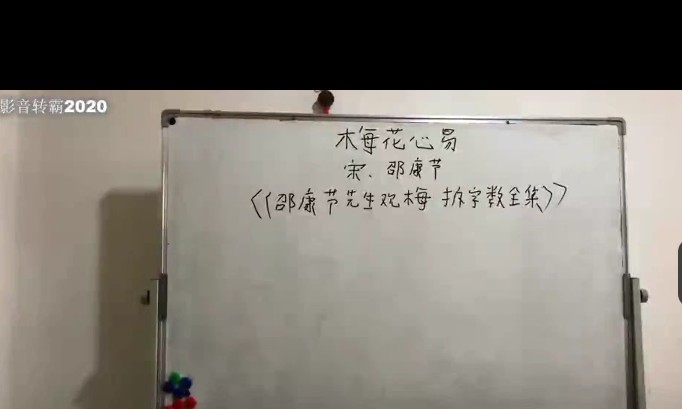 影音转霸2020
梅花心易
宋、邵康节
《邵康节先生观梅拆字数全集》